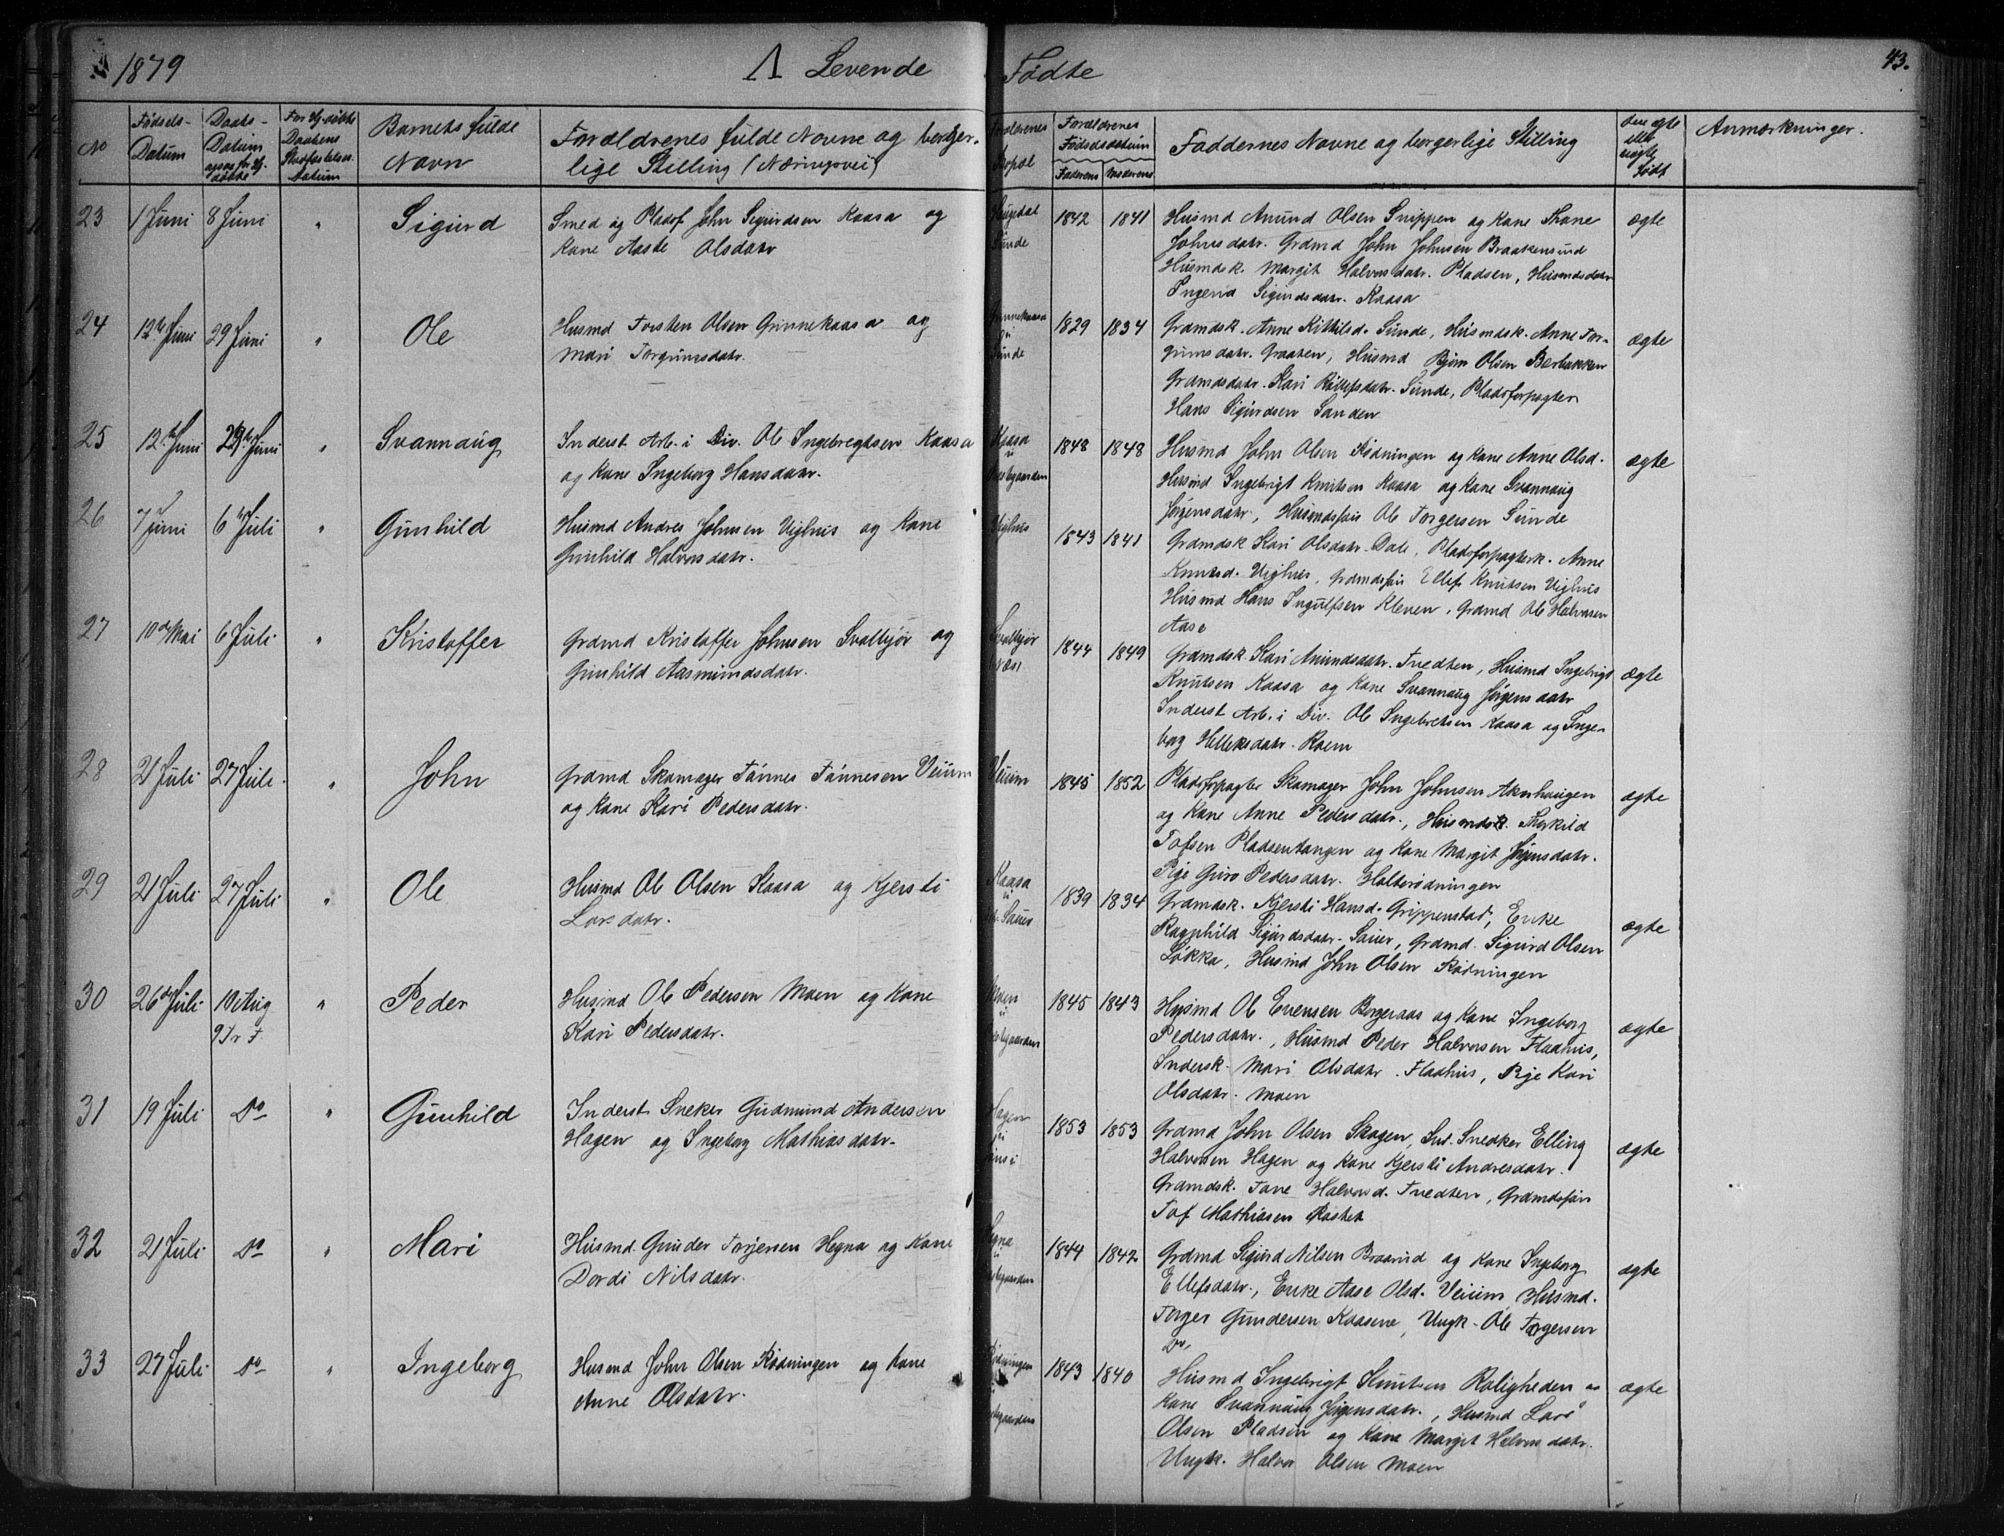 1879 1 Levende Fødte 43.
No
Fødsels-
Datum
Daabs-
Datum
Daabens
Stadfæstelses
Datum
Barnets fulde
Navn
Forældrenes fulde Navne og borger-
lige Stilling (Næringsvei)
Forældrenes
Bopæl
Forældrenes
Fødselsdatum
Faderens Moderens
Faddernes Navne og borgerlige Stilling
Om ægte
eller
uægte
født
Anmærkninger.
23 1 Juni 8 Juni " Sigurd
Smed og Pladsf John Sigurdsen Kaasa og
Kone Aaste Olsdatr
Sunde
1842 1841
Husmd Amund Olsen Snippen og Kone
Johnsdatr. Grdmd John Johnsen Braakensund
Husmdsk. Margit Halvorsdatr. Pladsen, Husmdsdatr
Ingerid Sigurdsdatr. Kaasa
ægte
24 12te Juni 29 Juni " Ole
Husmd Torsten Olsen Grinnekaasa og
Mari Torgrimsdatr.
Grinnekaasa
i
Sunde
1829 1834
Grdmdsk. Anne Kittilsd. Sunde, Husmdsk. Anne Tor-
grimsdatr. Graaten, Husmd Bjørn Olsen Berbakken
Grdmdsdatr. Kari Rollefsdatr. Sunde, Pladsforpagter
Hans Sigurdsen Sanden
ægte
25 12te Juni 29de Juni " Svannaug
Inderst Arb. i Div. Ole Ingebregtsen Kaasa
og Kone Ingeborg Hansdatr.
Kaasa
u
1848 1848
Husmd John Olsen Rødningen og Kone Anne Olsd.
Husmd Ingebrigt Knutsen Kaasa og Kone Svannaug
Jørgensdatr, Husmdsføir Ole Torgersen Sunde
ægte
26 7 Juni 6te Juli " Gunhild
Husmd Andres Johnsen Vighus og Kone
Gunhild Halvorsdatr.
Vighus
1843 1841
Grdmdsk Kari Olsdatr. Dale, Pladsforpagterk. Anne
Knutsd. Vighus, Grdmdsføir Ellef Knutsen Vighus
Husmd Hans Ingulfsen Kleven, Grdmd Ole Halvorsen
Aase
27 10de Mai 6 Juli " Kristoffer
Grdmd Kristoffer Johnsen Svalbjør og
Gunhild Aasmundsdatr.
Svalbjør
1844 1849
Grdmdsk. Kari Amundsdatr. Tvedten, Husmd Ingebrigt
Knutsen Kaasa og Kone Svannaug Jørgensdatr
Inderst Arb. i Div. Ole Ingebretsen Kaasa og Inge-
borg Helleksdatr. Roen
ægte
28 21 Juli 27 Juli. " John
Grdmd Skomager Tønnes Tønnesen Veium
og Kone Kari Pedersdatr.
Veium
1845 1852
Pladsforpagter Skomager John Johnsen Akerhaugen
og Kone Anne Pedersdatr., Husmdsk. Therkild
Tofsen Pladsentangen og Kone Margit Jørgensdatr.
Pige Guro Pedersdatr. Holterødningen
ægte
29 21 Juli 27 Juli " Ole
Husmd Ole Olsen Kaasa og Kjersti
Larsdatr.
Kaasa
u
Sauer
1839 1834
Grdmdsk. Kjersti Hansd. Grippenstad, Enke
Ragnhild Sigurdsdatr. Sauer, Grdmd. Sigurd Olsen
Løkka, Husmd John Olsen Rødningen
ægte
30 26de Juli 10 Aug " Peder
9 S e T
Husmd Ole Pedersen Moen og Kone
Kari Pedersdatr.
Moen
u
1845 1843
Husmd Ole Evensen Borgeraas og Kone Ingeborg
Pedersdatr., Husmd Peder Halvorsen Fladhus,
Indersk. Mari Olsdatr. Fladhus, Pige Kari
Olsdatr. Moen
ægte
31 19 Juli Do " Gunhild
Inderst Sneker Gudmund Andersen
Hagen og Ingeborg Mathiasdatr.
Hagen
1853 1853
Grdmd John Olsen Skogen, Ind. Snedker Elling
Halvorsen Hagen og Kone Kjersti Andresdatr.
Grdmdsk. Tone Halvorsd. Tvedten, Grdmdsføir
Tof Mathiasen
ægte
32 21 Juli Do " Mari
Husmd. Gunder Torjersen Hegna og Kone
Dordi Nilsdatr.
Hegna
u
1844 1842
Grdmd Sigurd Nilsen Braarud og Kone Ingeborg
Ellefsdatr., Enke Aase Olsd. Veium, Husmd.
Torger Gundersen Kaasene, Ungk. Ole Torgersen
Do.
ægte
33 27 Juli Do " Ingeborg
Husmd John Olsen Rødningen og Kone
Anne Olsdatr.
Rødningen
1843 1840
Husmd Ingebrigt Knutsen Roligheden og
Kone Svannaug Jørgensdatr., Husmd Lars
Olsen Pladsen og Kone Margit Halvorsdatr.
Ungk. Halvor Olsen Moen
ægte